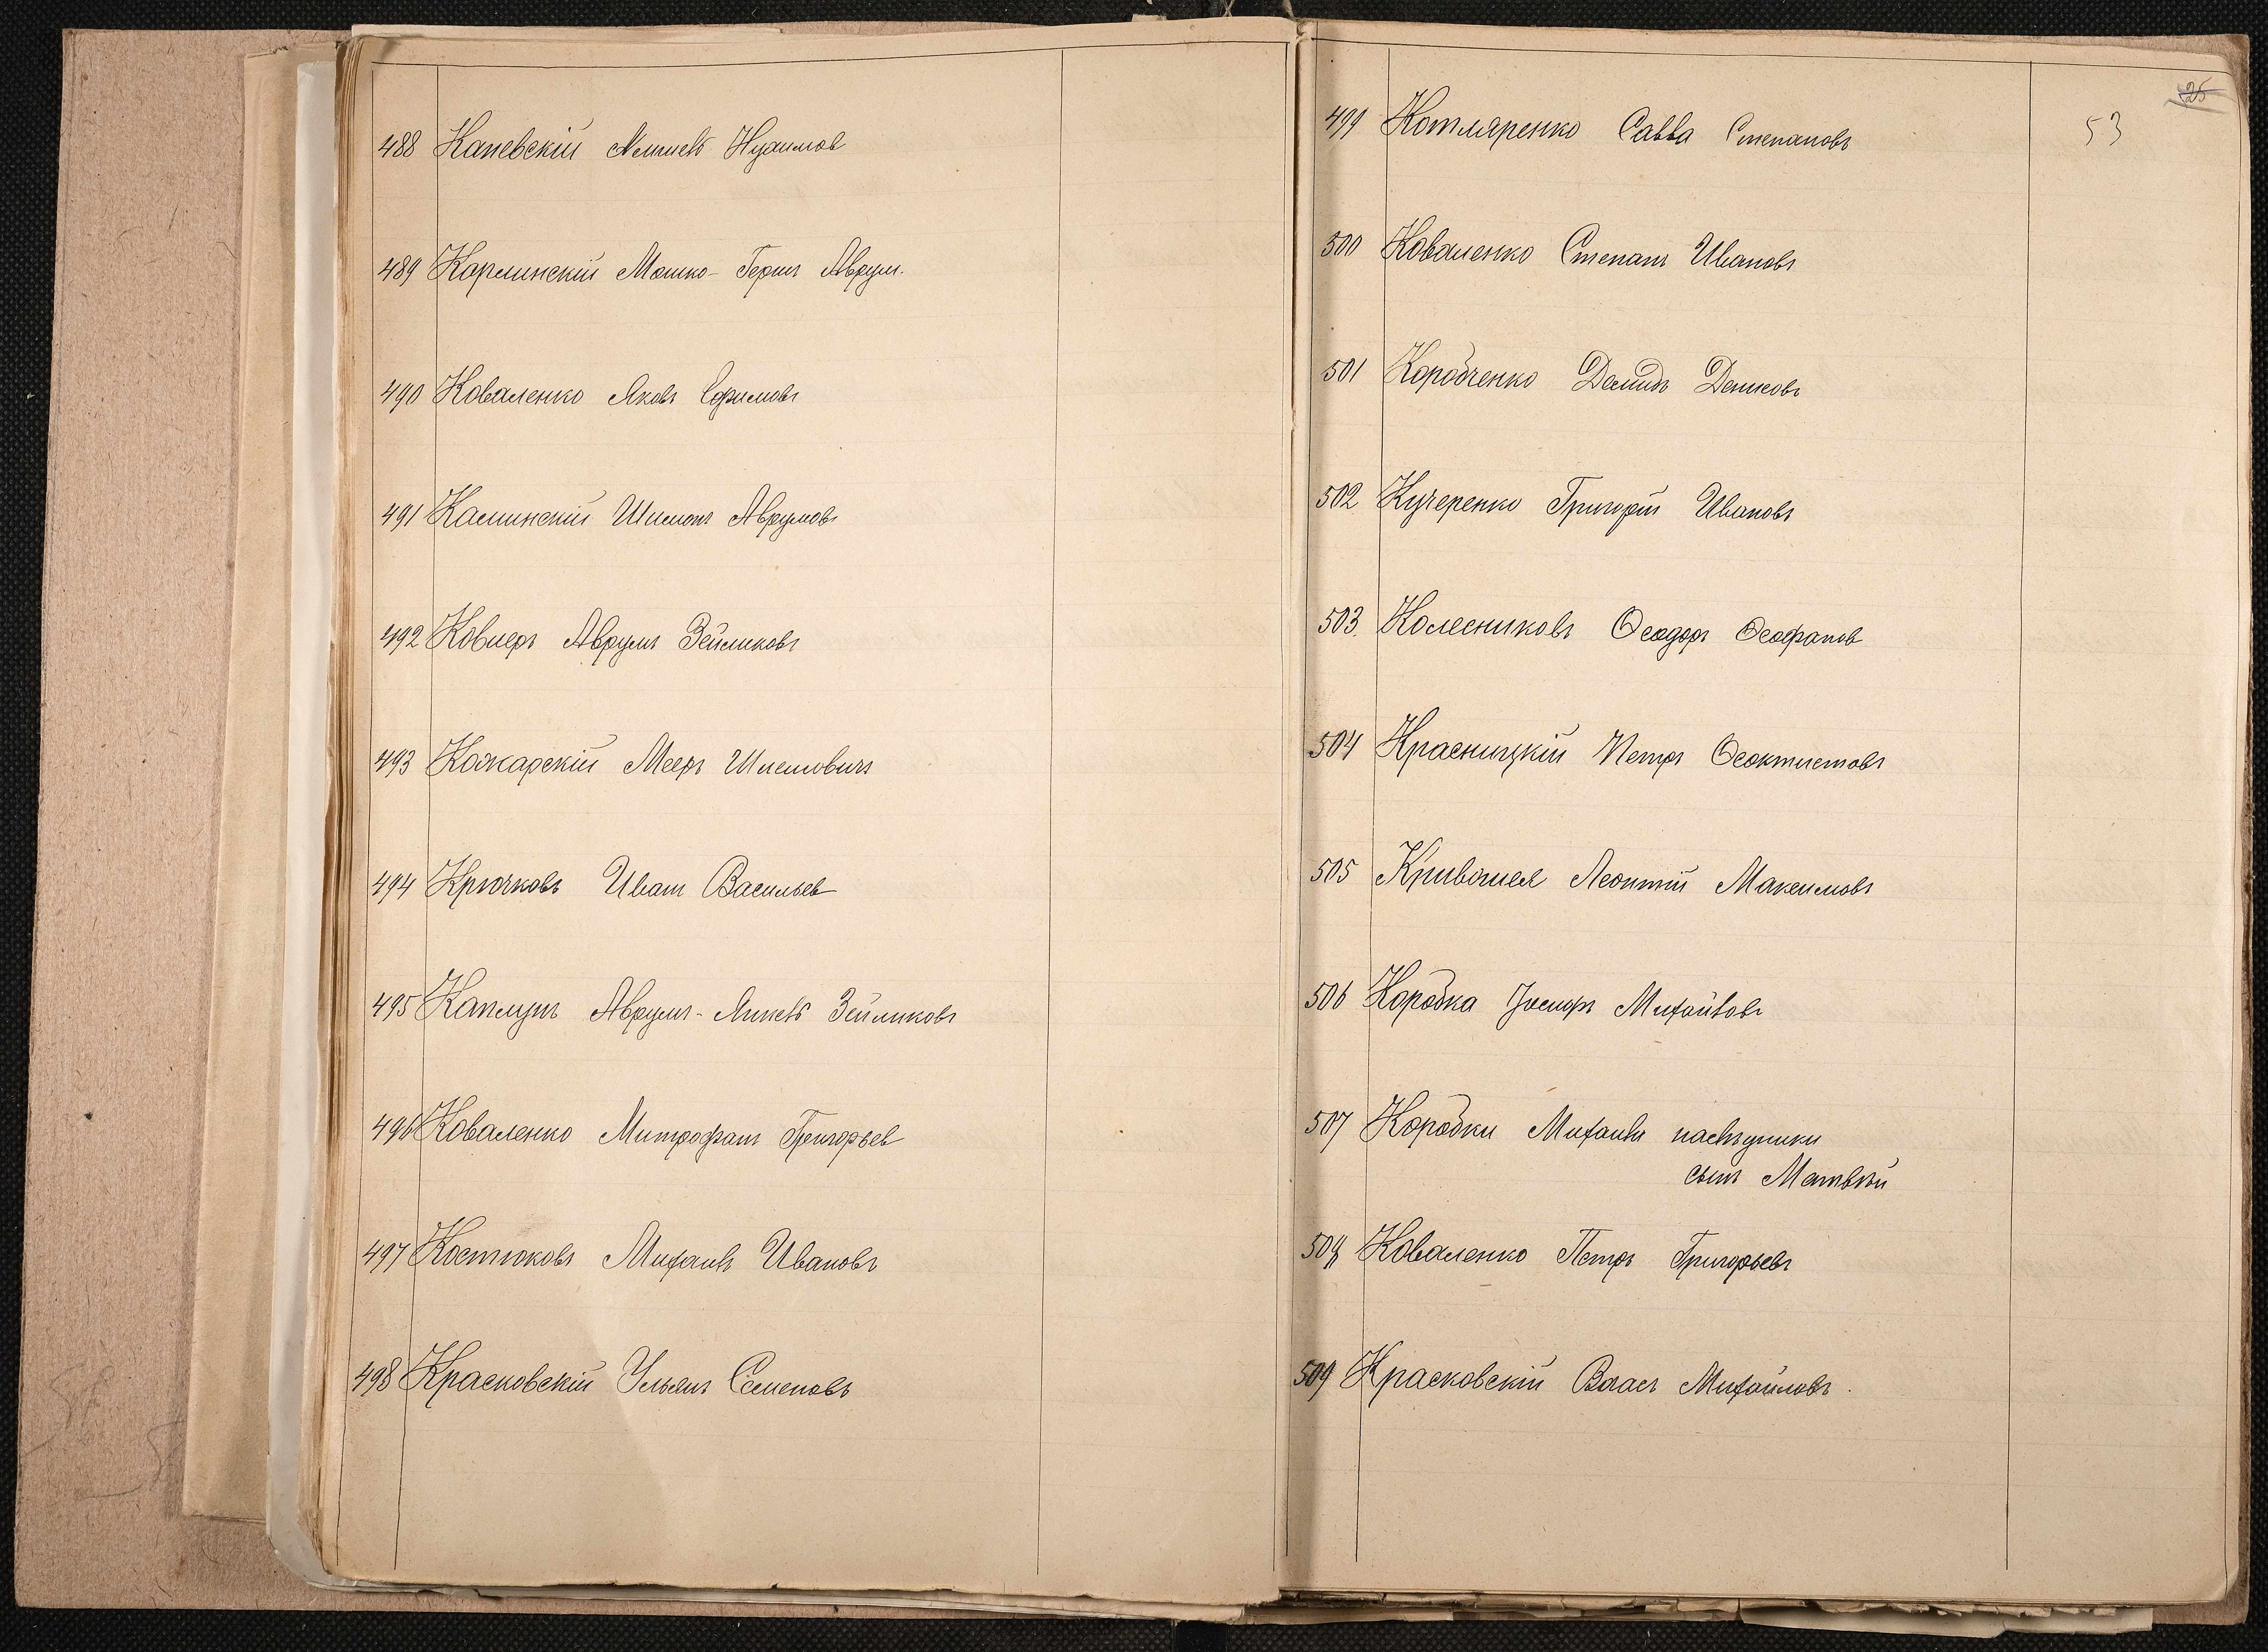 488 Каневскій Нухимов
489 Карлинскій Мошко-Герш Аврум.
490 Коваленко Яковъ Ефимовъ
491 Калинскій Шимонъ Аврумовъ
492 Ковнеръ Аврумъ Зейликовъ
493 Кожарскій Мееръ Шлемовичъ
494 Крючковъ Иванъ Васильев
495 Каплунъ Аврумъ- Зейликовъ
496 Коваленко Митрофанъ Григорьев
497 Костюковъ Михаилъ Ивановъ
498 Красковскій Ульянъ Семеновъ
25
53
499 Котляренко Савва Степановъ
500 Коваленко Степанъ Ивановъ
501 Коробченко Демидъ Денисовъ
502 Кучеренко Григорій Ивановъ
503. Колесниковъ Ѳеодоръ Ѳеофанов
504 Красницкій Петръ Ѳеоктистовъ
505 Кривошея Леонтій Максимовъ
506 Коробка Іосифъ Михайловъ
507 Коробки Михаила наслѣдники
сынъ Матвѣй
508 Коваленко Петръ Григорьевъ
509 Красковскій Власъ Михайловъ.